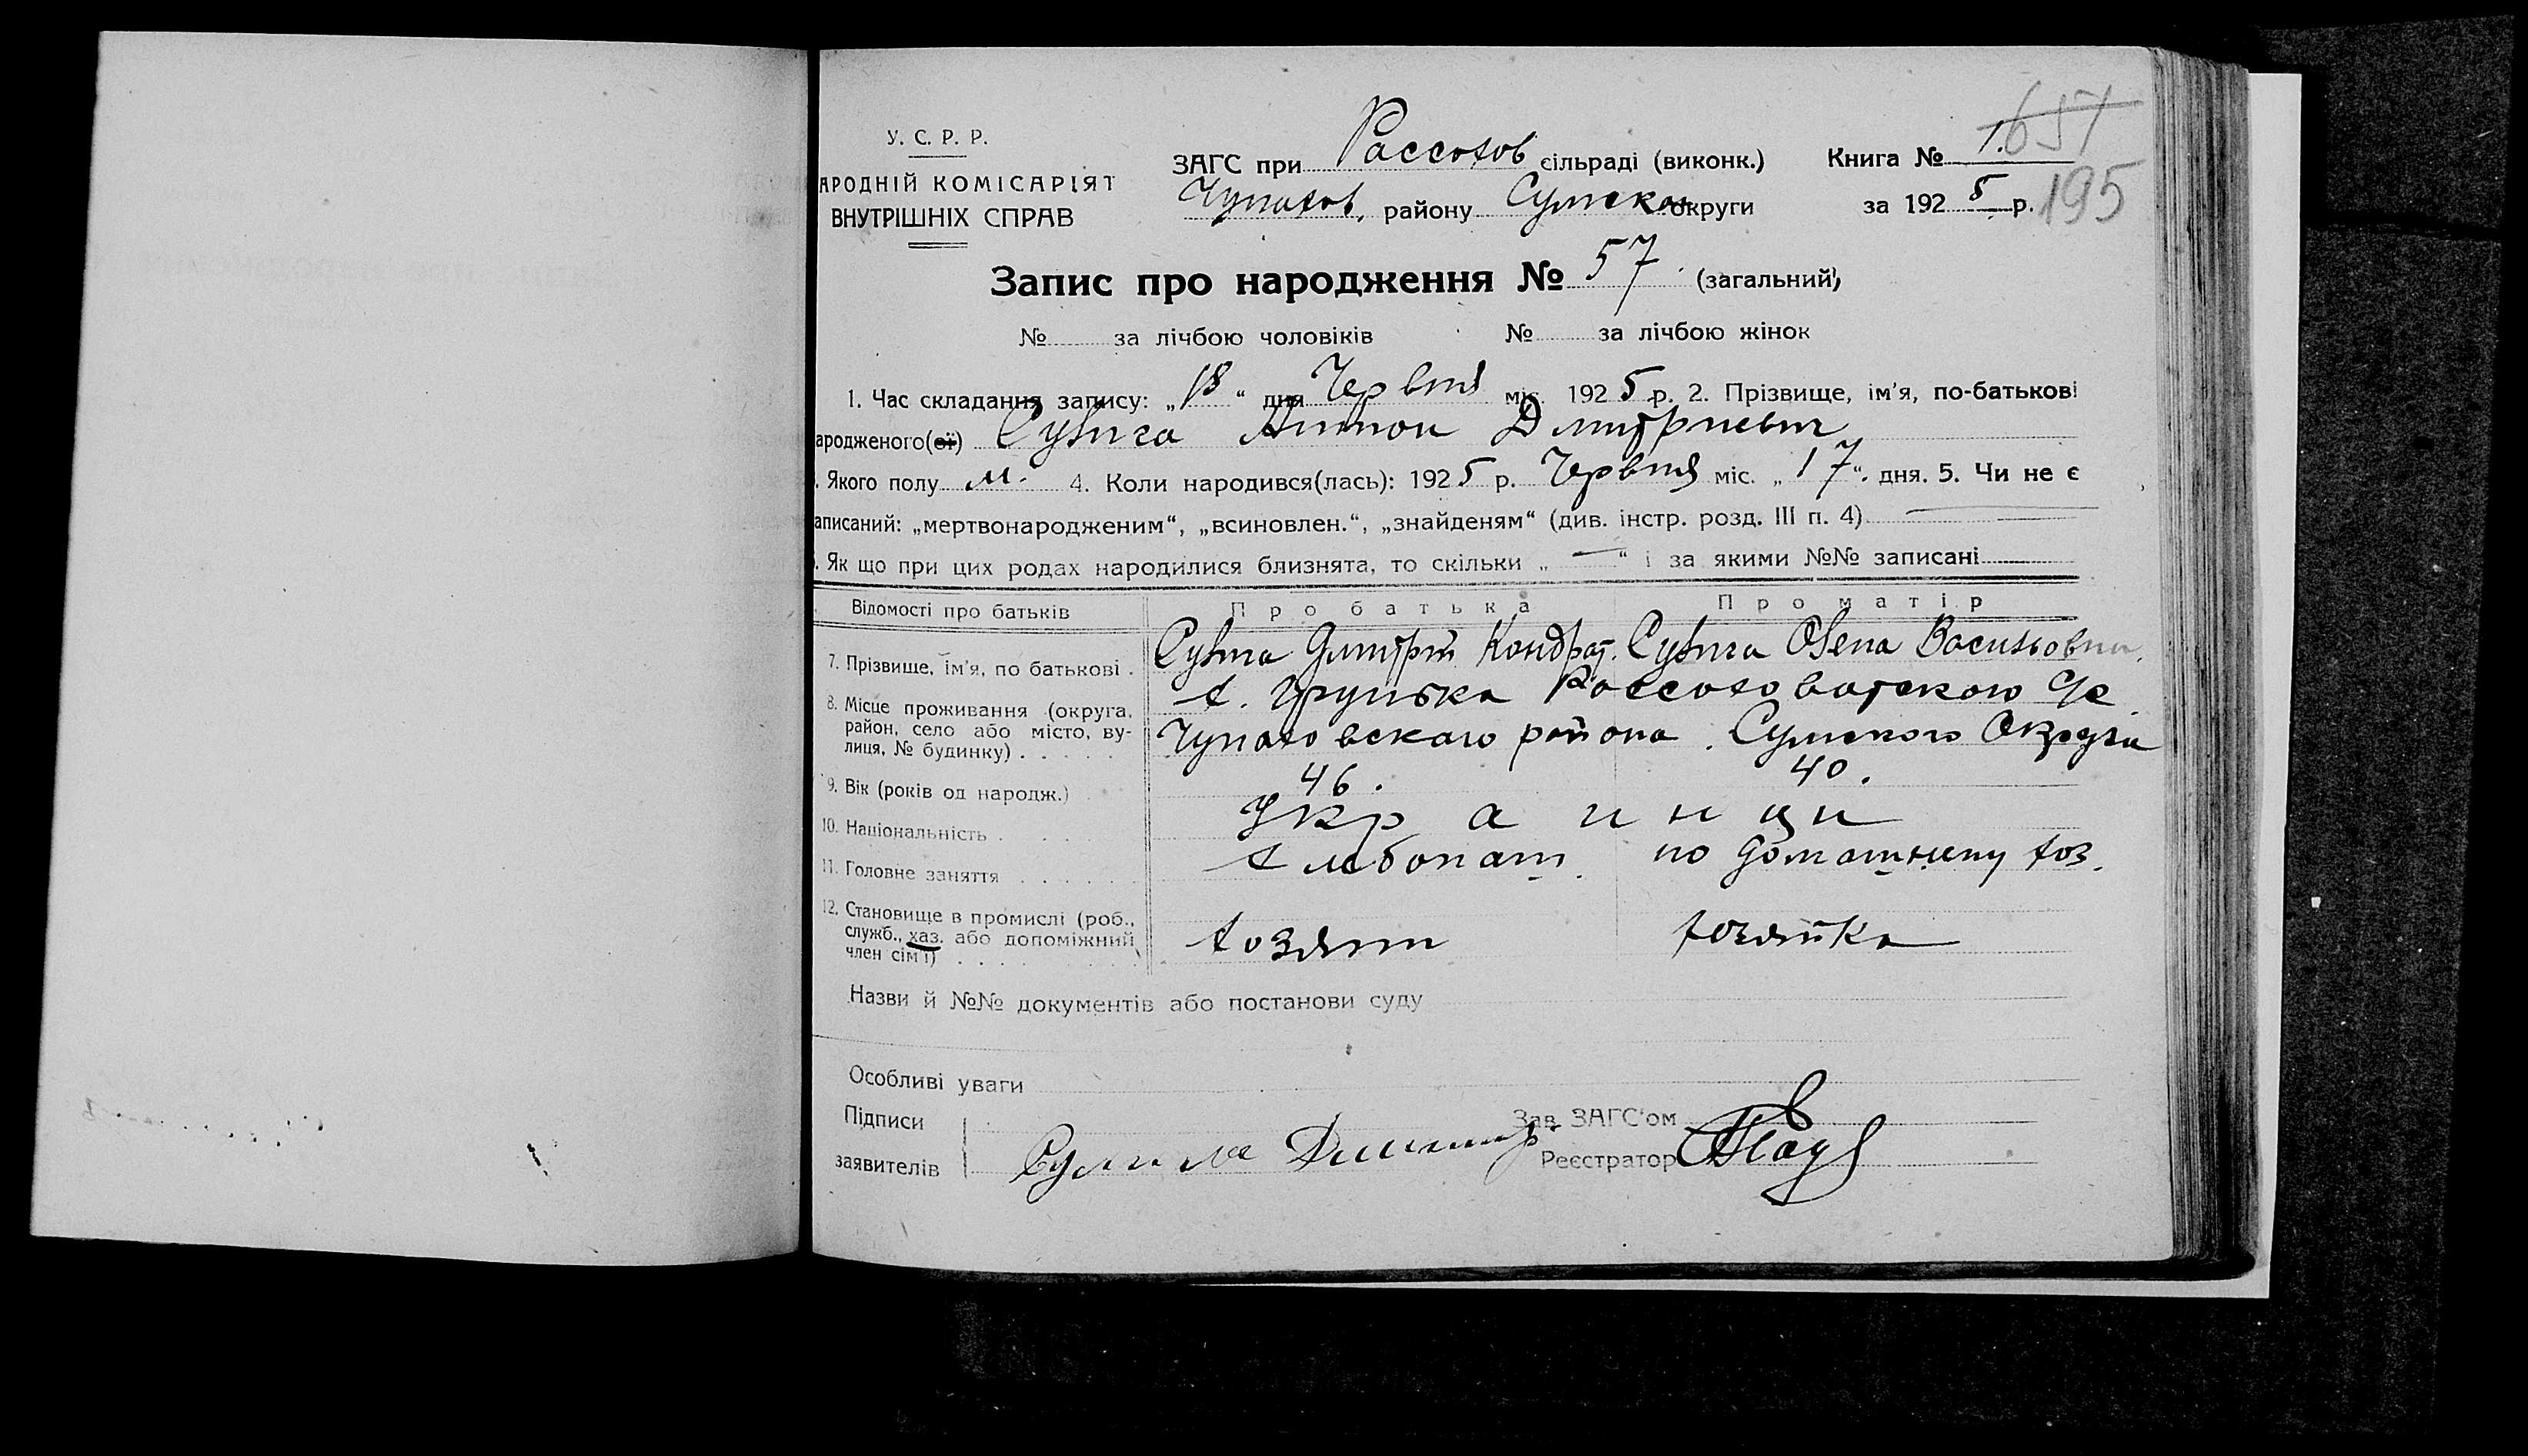 У. С. Р. Р.
АРОДНІЙ КОМІСАРІЯТ
ВНУТРІШНІХ СПРАВ
ЗАГС при Рассохов сільраді (виконк.)
Чупахов. району Сумской округи
Книга № 1. 657
за 1925 р. 195
Запис про народження № 57 (загальний)
№ за лічбою чоловіків № за лічбою жінок
1. Час складання запису: „18“ дня Червня міс. 1925 р. 2. Прізвище, ім'я, по-батькові
ародженого(ої) Сулига Антон Дмитриевич
. Якого полу м. 4. Коли народився(лась): 1925 р. Червня міс. „17“. дня. 5. Чи не є
аписаний: „мертвонародженим“, „всиновлен.“, „знайденям“ (див. інстр. розд. III п. 4)
. Як що при цих родах народилися близнята, то скільки „—“ і за якими №№ записані
Відомості про батьків Про батька Про матір
7. Прізвище, ім'я, по батькові . Сулига Дмитрий Кондрат. Сулига Олена Васильовна.
8. Місце проживання (округа, район, село або місто, вулиця, № будинку) х. Грунька Рассоховатского
Чупаховскаго района. Сумского Округа
9. Вік (років од народж.) 46. 40.
10. Національність Украинци
11. Головне заняття хлебопаш. по домашнему хоз.
12. Становище в промислі (роб., служб., хаз. або допоміжний член сім'ї) хозяин хозяйка
Назви й №№ документів або постанови суду
Особливі уваги
Підписи
заявителів
Зав. ЗАГС'ом
Реєстратор